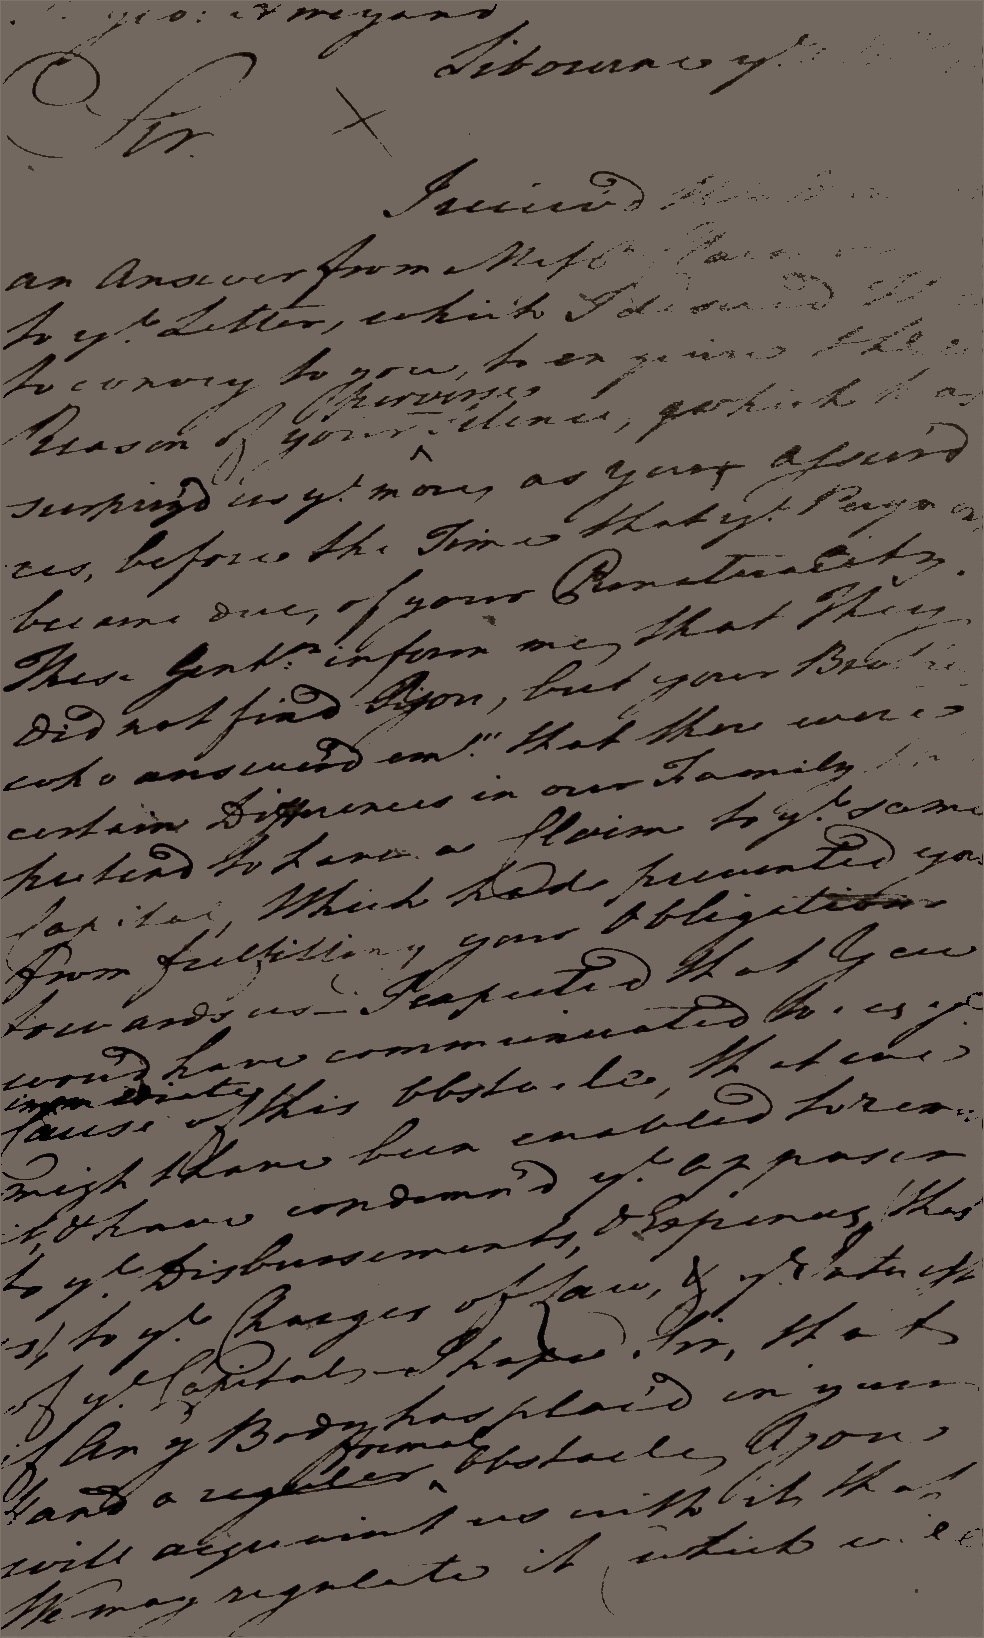 Libourne ye
Sir
I receiv'd
an Answer from Mess
to ye Letter, which I desired
to convey to you, to enquire the
perverse
Reason of your Silence, which has
surpriz'd us ye more, as you assur'd
us, before the Time that ye Paym
became due, of your Punctuality.
These Gentn inform me, that They
did not find you, but your Brothe
who answer'd em "that there were
certain Differences in our Family
pretend to have a Claim to ye same
Capital, Which had prevented you
from fulfilling your Obligations
towards us— I expected that you
would have communicated to us ye
immediate
Cause of this Obstacle, that we
might have been enabled to rem
it, & have condemn'd ye opposer
to ye Disbursements, & Expences, (that
is) to ye Charges of Law, & ye Interest
of ye Capital— I hope Sir, that
if Any Body has plac'd in your
formal
Hand a regular Obstacle, you
will acquaint us with it, that
We may regulate it (which will